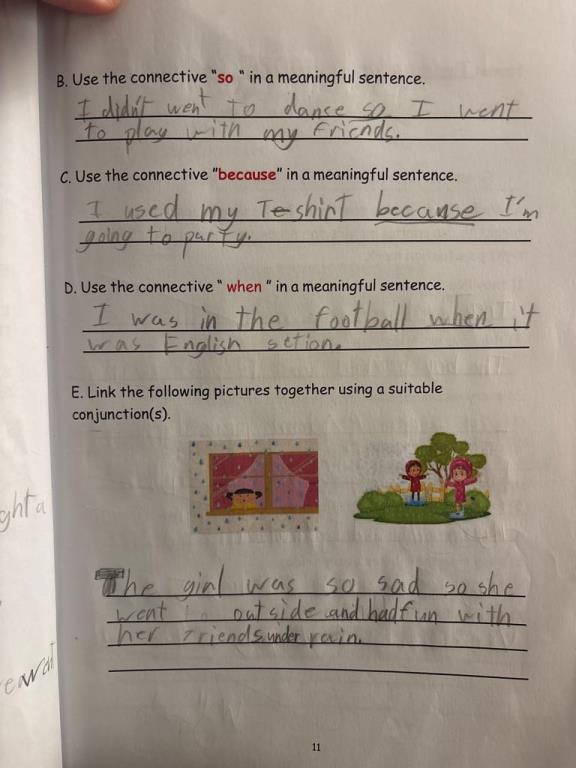 B. Use the connective "so " in a meaningful sentence.
I didn't went to dance so I went
to play with my friends.
C. Use the connective "because" in a meaningful sentence.
I used my Te-shirt because I'm
going to party.
D. Use the connective " when " in a meaningful sentence.
I was in the football when it
was English setion.
E. Link the following pictures together using a suitable
conjunction(s).
ght a
The girl was so sad so she
went outside and had fun with
her friends under rain.
11